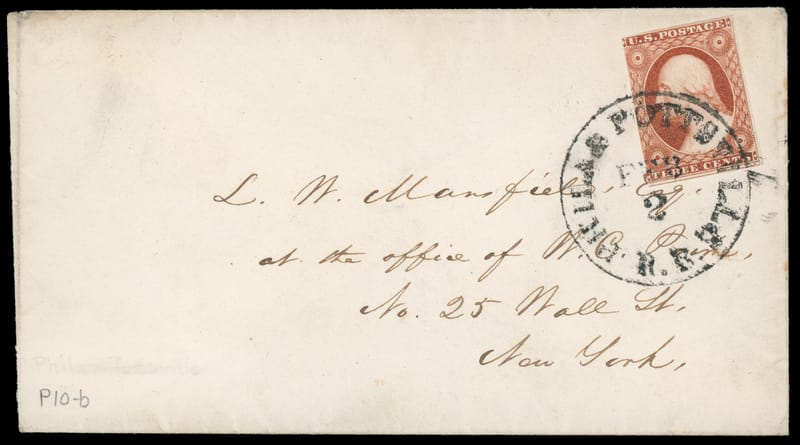 U.S. POSTAGE
THREE CENTS
PHILA & POTTSVILLE R.R.
FEB
2
L. W. Mansfield, Esq.
at the office of W. C.
No. 25 Wall St.
New York.
P10-b